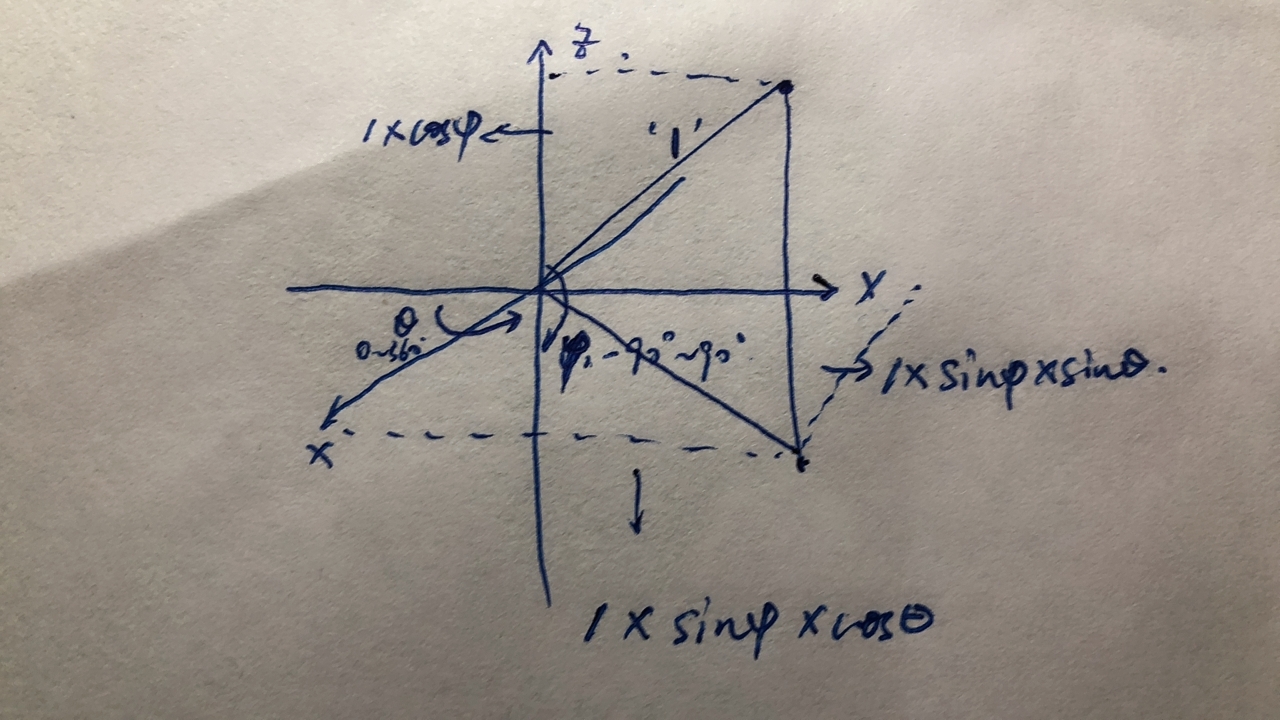 z
1×cosφ
'1'
x
θ
0~360°
φ: -90°~90°
1×sinφ×sinθ.
x
1×sinφ×cosθ